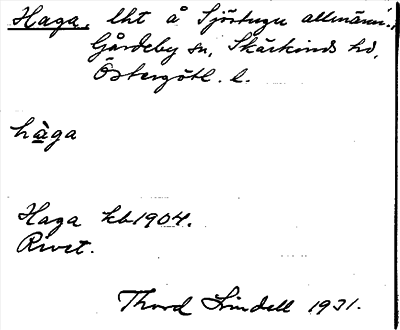 Haga, lht å Sjöstugu allmänn.,
Gårdeby sn, Skärkinds hd,
Östergötl. l.
hàga
Haga kb 1904.
Rivet.
Thord Lindell 1931.